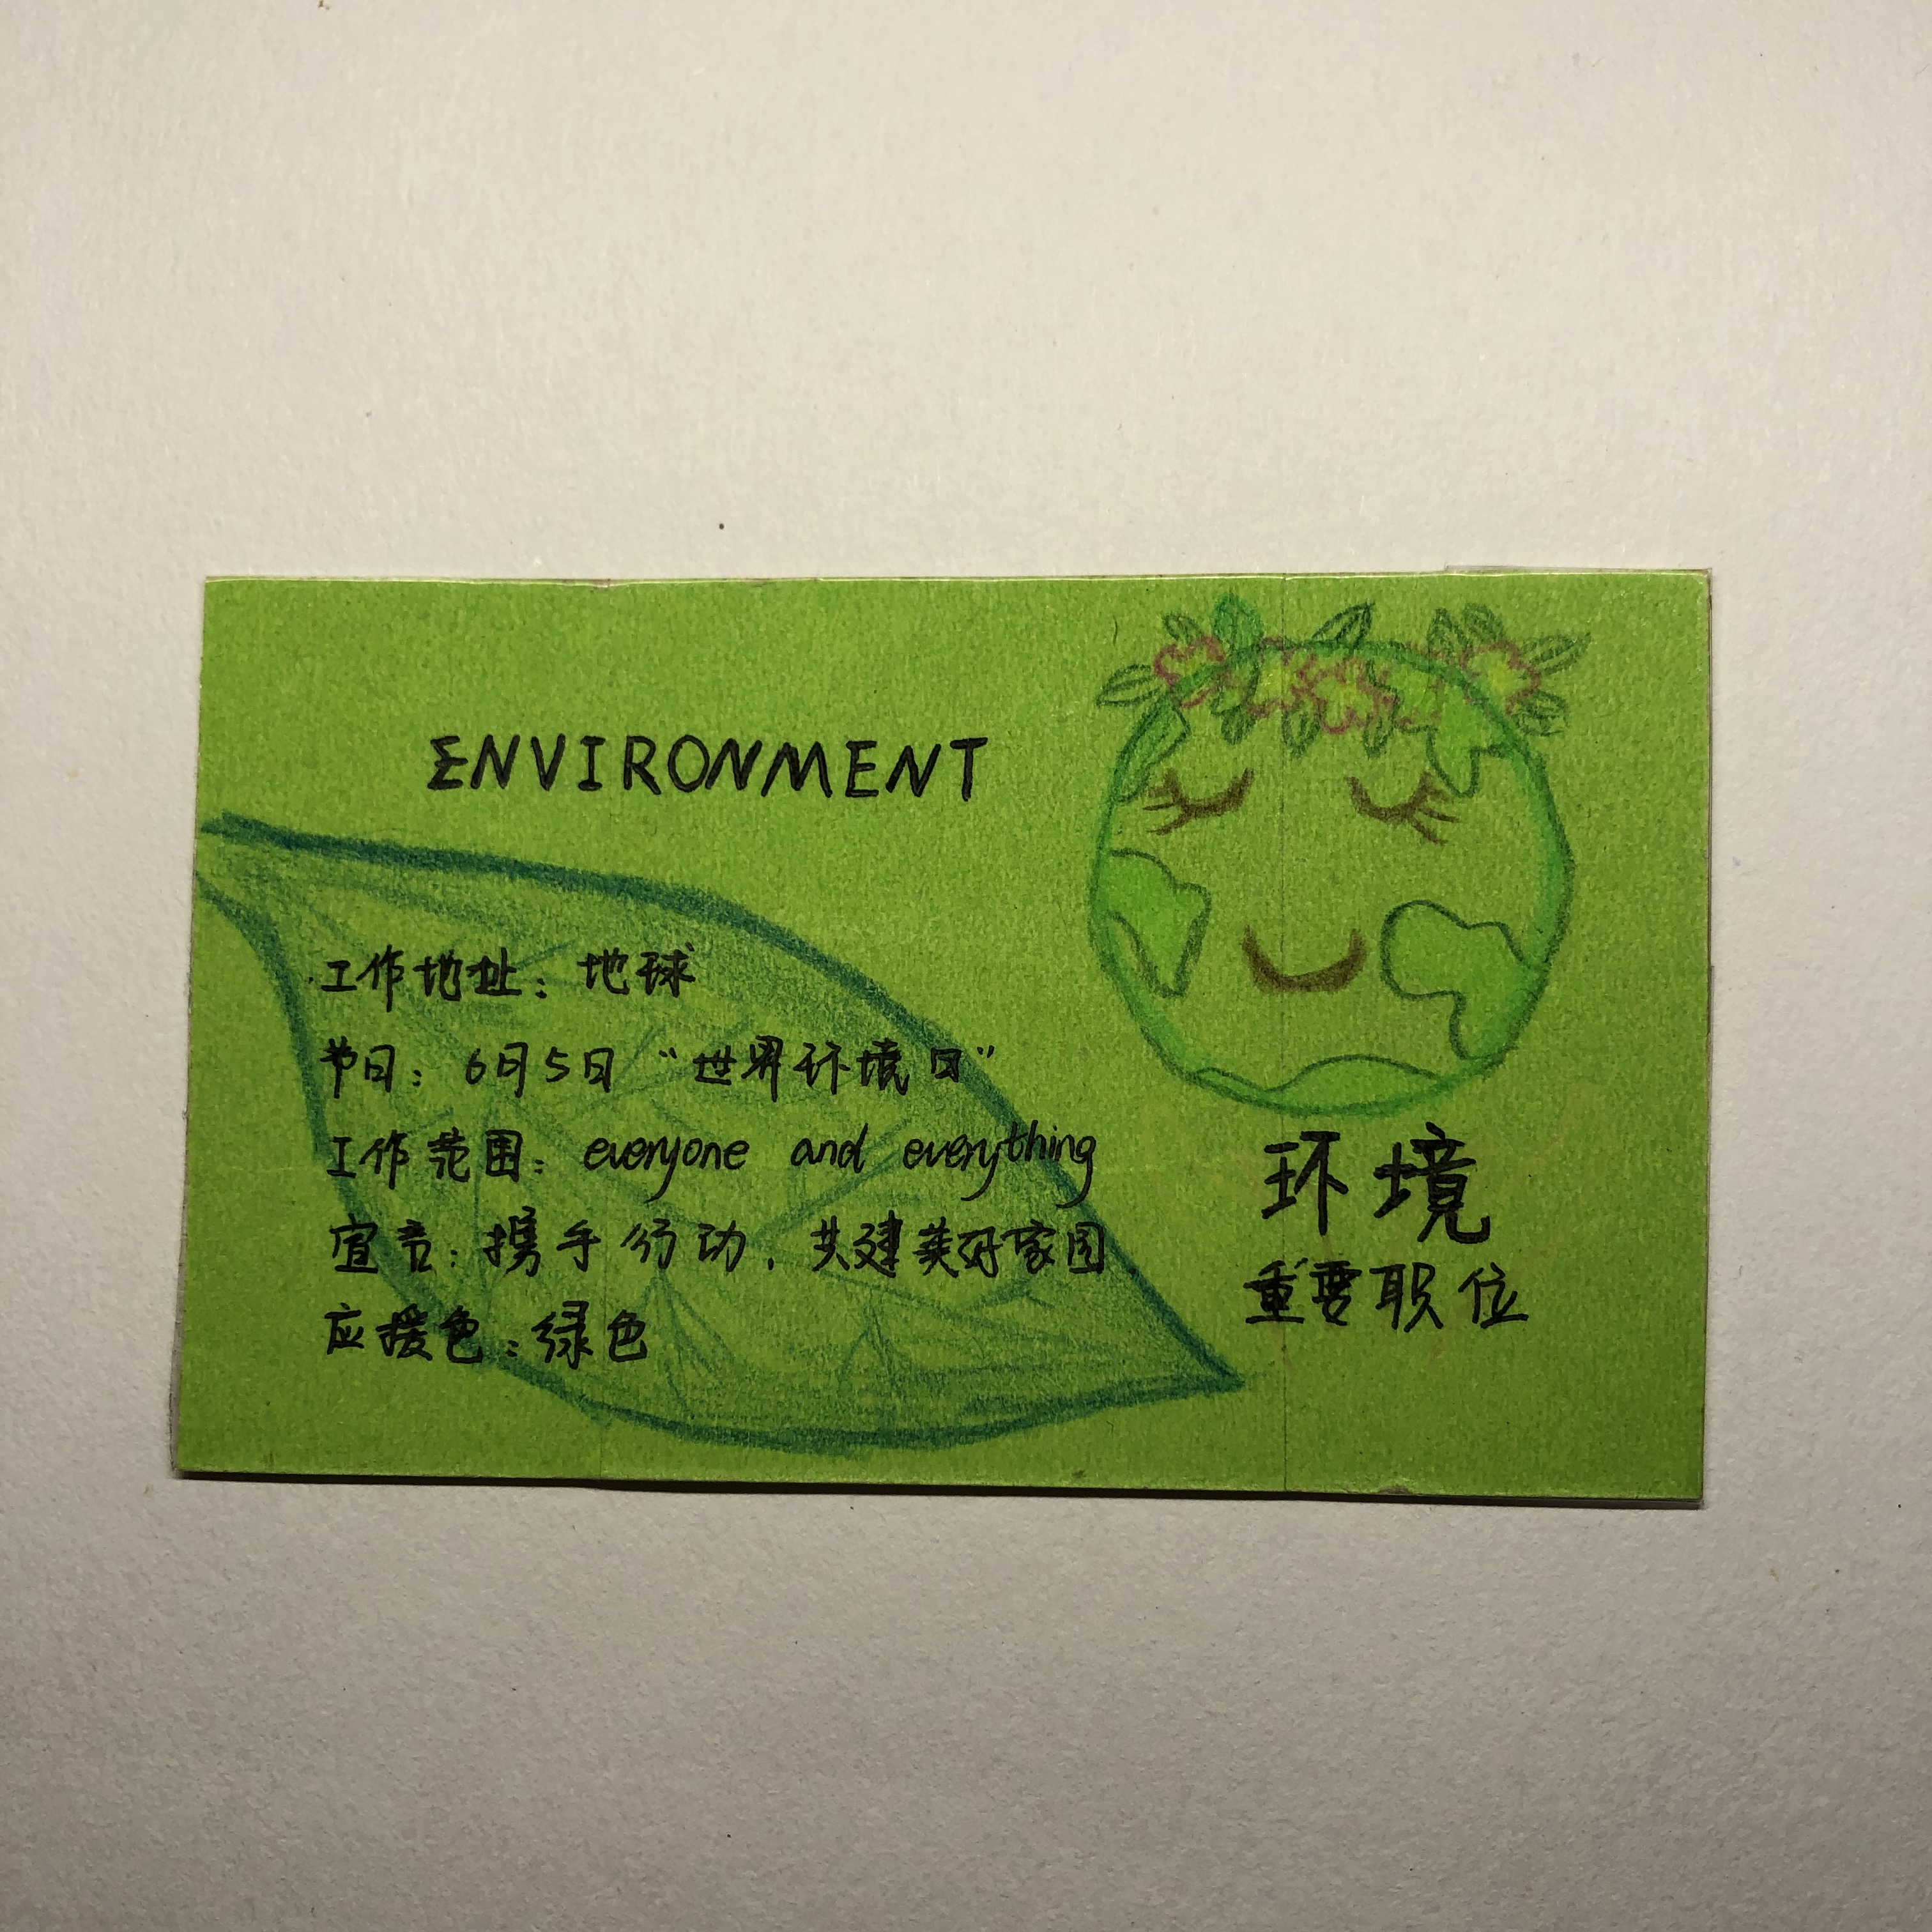 ENVIRONMENT
工作地址：地球
节日：6月5日“世界环境日”
工作范围：everyone and everything
宣言：携手行动，共建美好家园
应援色：绿色
环境
重要职位